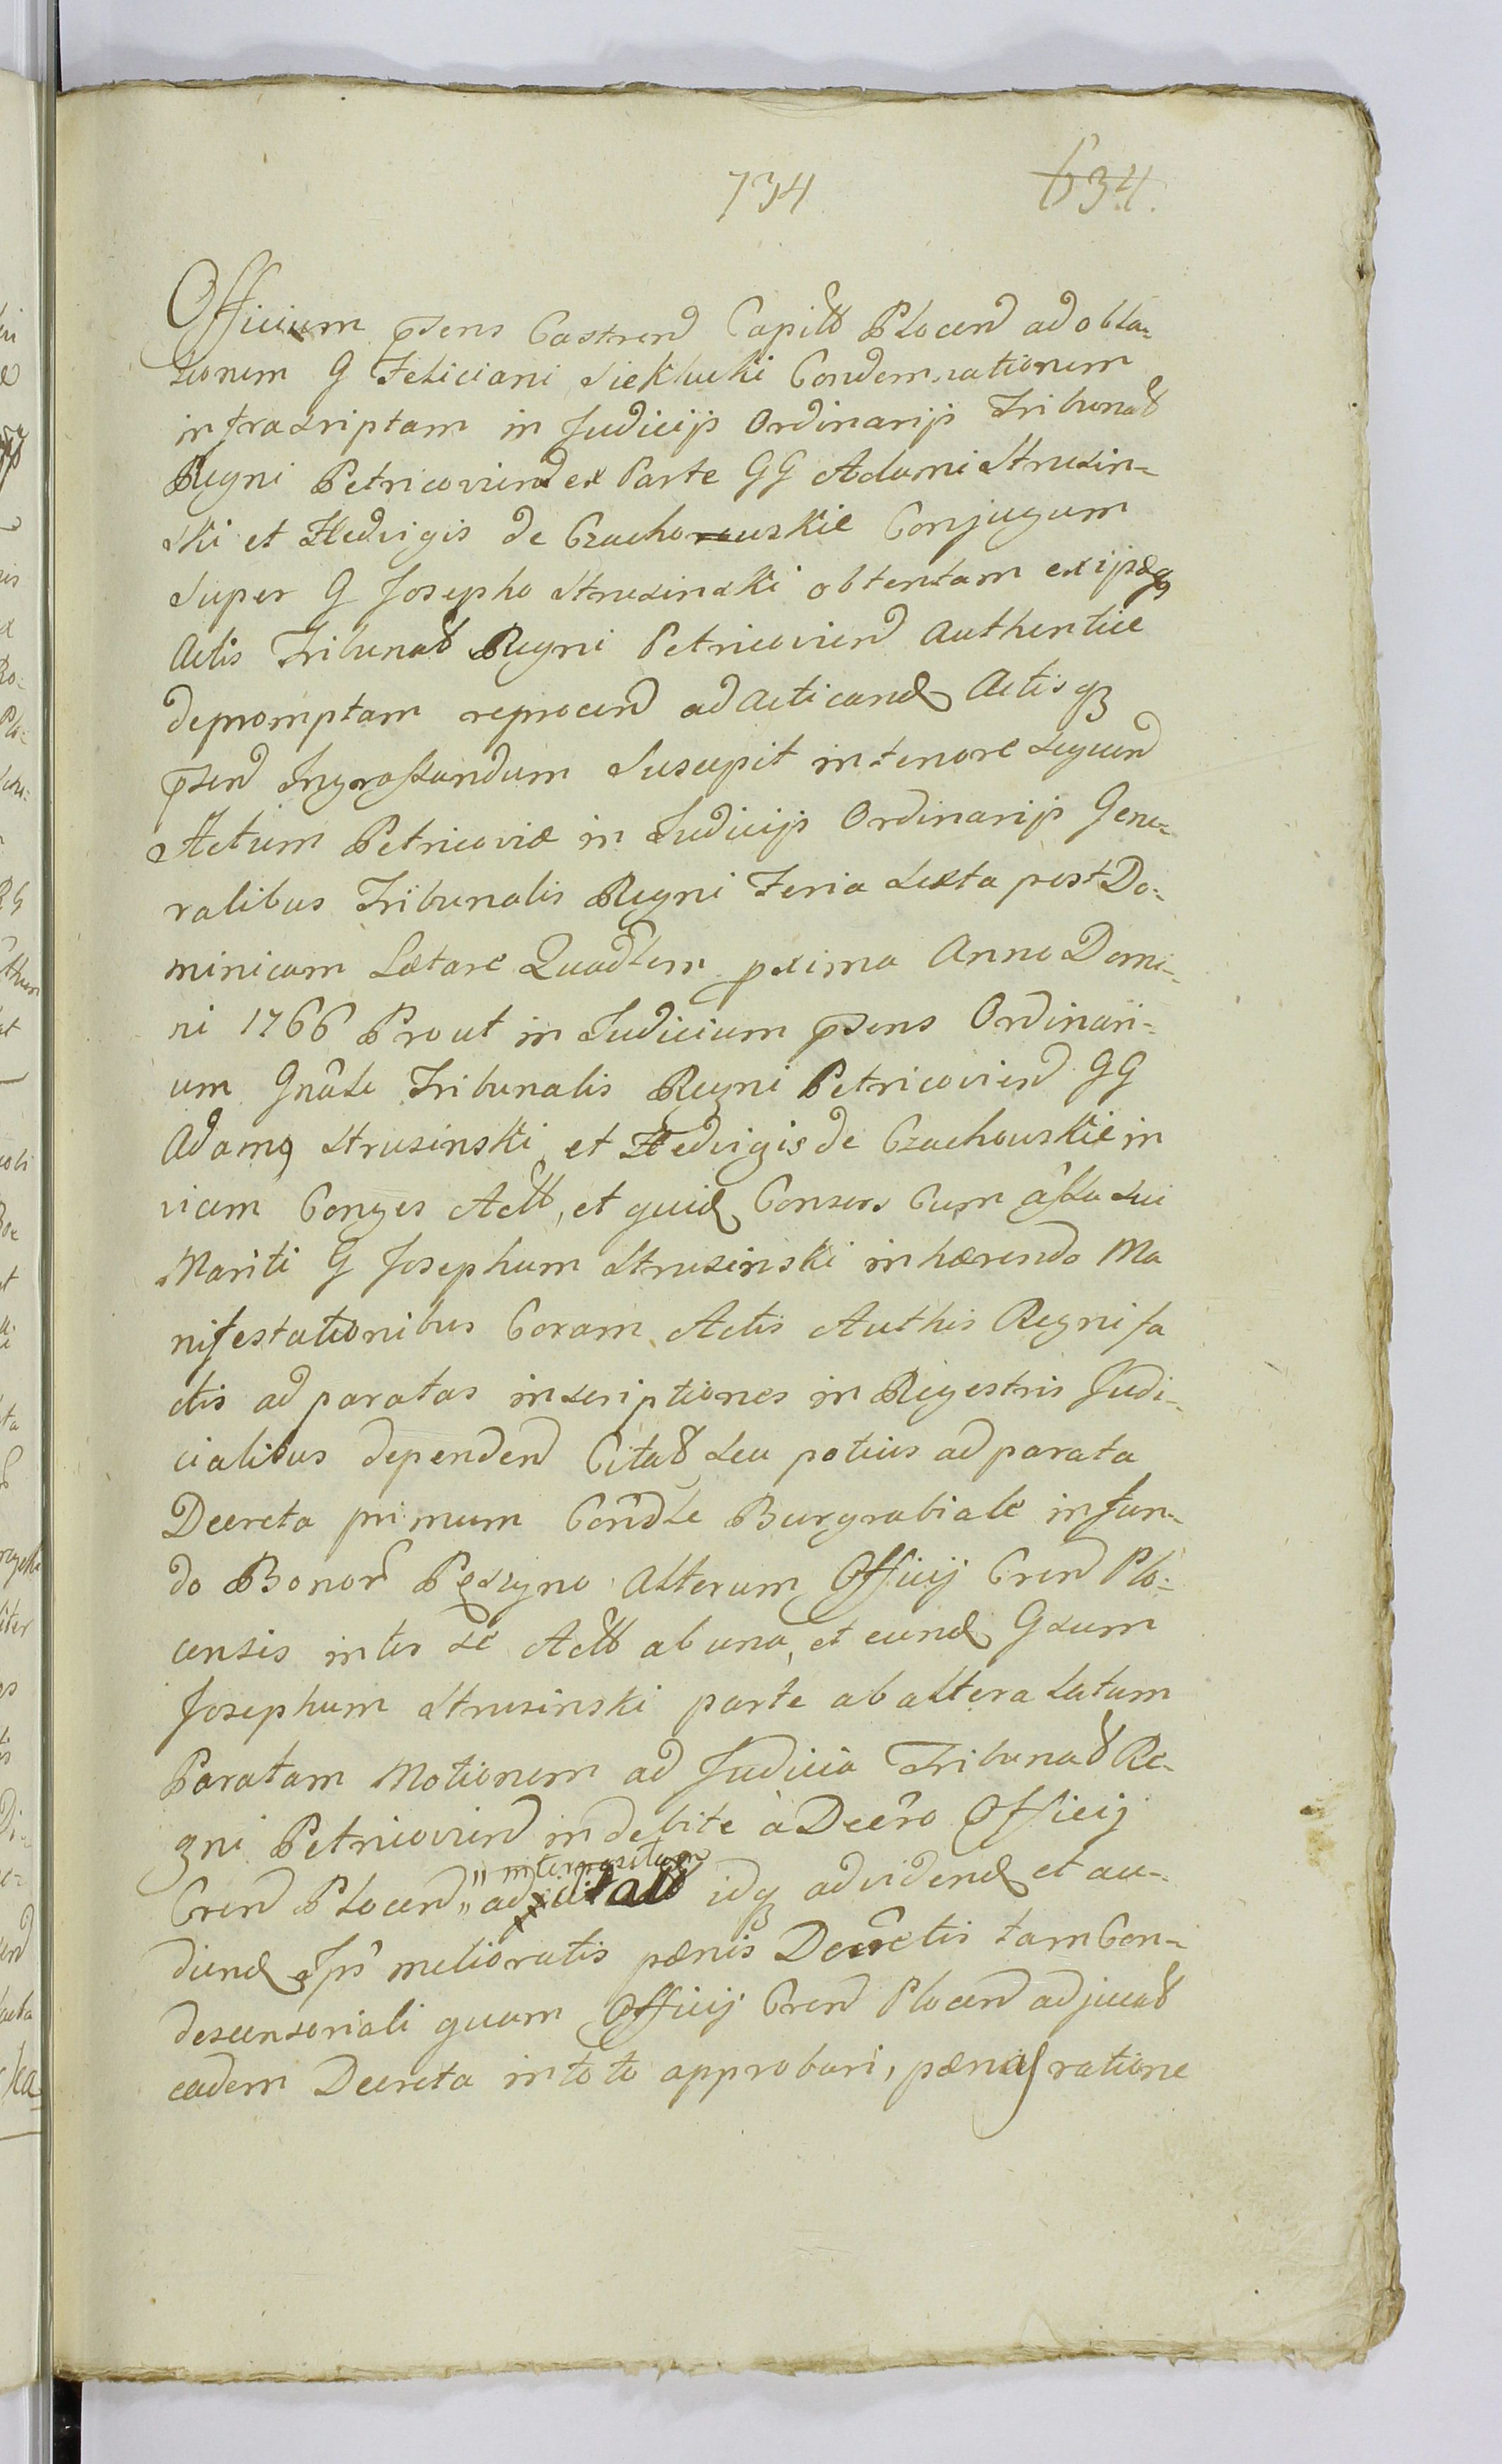 734 634.
Officium pñsens Castren Capitlis Plocen ad obla-
tionem G Feliciani Siekłucki Condemnationem
infrascriptam in Judicijs Ordinarijs Tribunal
Regni Petricovien ex Parte GG Adami Strusin-
ski et Hedvigis de Czachowskie Conjugum
Super G Josepho Strusinski obtentam ex ijsdem
Actis Tribunal Regni Petricovien Authentice
depromptam reprocen ad Acticand Actisq
pñsen Ingrossandum Suscepit in tenore sequen
Actum Petricoviæ in Judicijs Ordinarijs Gene-
ralibus Tribunalis Regni Feria Sexta post Do-
minicam Lætare Quadlem pxima Anno Domi-
ni 1766 Prout in Judicium pñsens Ordinari-
um Gnãle Tribunalis Regni Petricovien GG
Adamq Strusinski et Hedvigis de Czachowskie in
vicem Conges Act, et quid Consors Cum assla sui
Mariti G Josephum Strusinski inhærendo Ma
nifestationibus Coram Actis Authis Regni fa
ctis ad paratas inscriptiones in Regestris Judi-
cialibus dependen Citat seu potius ad parata
Decreta primum Condle Burgrabiale in fun-
do Bonor Alterum Officij Cren Plo-
censis inter se Act ab una, et eund Gsum
Josephum Strusinski parte ab altera latum
Paratam Motionem ad Judicia Tribunal Re-
gni Petricovien indebite à Decro Officij
"interposit
Cren Plocen" ad citat idq ad videnđ et au-
diend Ipi melioratis pænis Decretis tam Con-
descensoriali quam Officij Cren Plocen adjucat
eadem Decreta in toto approbari, pænas ratione